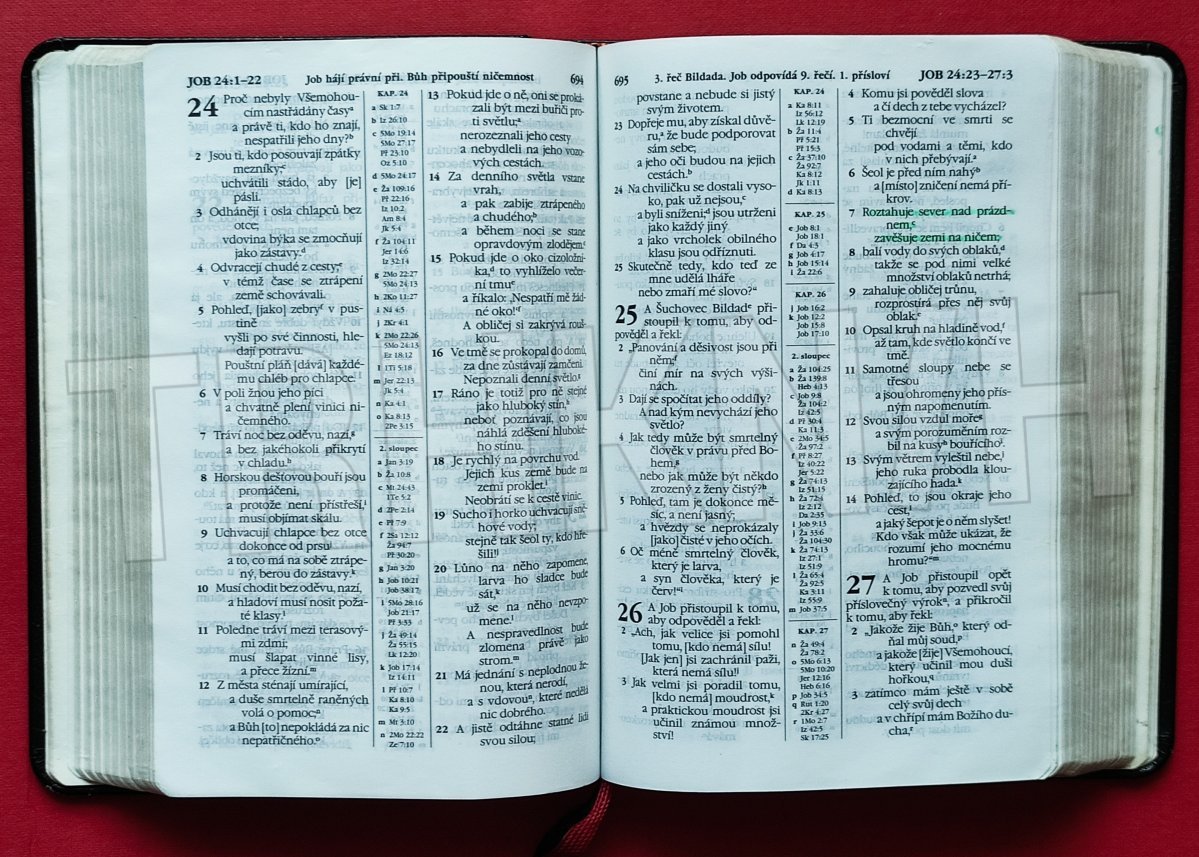 JOB 24:1–22 Job hájí právní při. Bůh připouští ničemnost 694
24 Proč nebyly Všemohou-
cím nastřádány časyᵃ
a právě ti, kdo ho znají,
nespatřili jeho dny?ᵇ
2 Jsou ti, kdo posouvají zpátky
mezníky;ᶜ
uchvátili stádo, aby [je]
pásli.
3 Odhánějí i osla chlapců bez
otce;
vdovina býka se zmocňují
jako zástavy.ᵈ
4 Odvracejí chudé z cesty;ᵉ
v témž čase se ztrápení
země schovávali.
5 Pohleď, [jako] zebryᶠ v pus-
tině
vyšli po své činnosti, hle-
dají potravu.
Pouštní pláň [dává] každé-
mu chléb pro chlapce.
6 V poli žnou jeho píci
a chvatně plení vinici ni-
čemného.
7 Tráví noc bez oděvu, nazí,ᵍ
a bez jakéhokoli přikrytí
v chladu.ʰ
8 Horskou dešťovou bouří jsou
promáčeni,
a protože není přístřeší,ⁱ
musí objímat skálu.
9 Uchvacují chlapce bez otce
dokonce od prsuʲ
a to, co má na sobě ztrápe-
ný, berou do zástavy.ᵏ
10 Musí chodit bez oděvu, nazí,
a hladoví musí nosit požа-
té klasy.ˡ
11 Poledne tráví mezi terasový-
mi zdmi;
musí šlapat vinné lisy,
a přece žízní.ᵐ
12 Z města sténají umírající,
a duše smrtelně raněných
volá o pomoc;ⁿ
a Bůh [to] nepokládá za nic
nepatřičného.ᵒ
KAP. 24
a Sk 1:7
b Iz 26:10
c 5Mo 19:14
5Mo 27:17
Př 23:10
Oz 5:10
d 5Mo 24:17
e Ža 109:16
Př 22:16
Iz 10:2
Am 8:4
Jk 5:4
f Ža 104:11
Jer 14:6
Iz 32:14
g 2Mo 22:27
5Mo 24:13
h 2Ko 11:27
i Ná 4:5
j 2Kr 4:1
k 2Mo 22:26
5Mo 24:13
Ez 18:12
l 1Ti 5:18
m Jer 22:13
Jk 5:4
n Ka 4:1
o Ka 8:13
2Pe 3:15
2. sloupec
a Jan 3:19
b Ža 10:8
c Mt 24:43
1Te 5:2
d 2Pe 2:14
e Př 7:9
f 2Sa 12:12
Ža 94:7
Př 30:20
g Jan 3:20
h Job 10:21
Job 38:17
i 5Mo 28:16
Job 21:17
Př 3:33
j Ža 49:14
Ža 55:15
Lk 12:20
k Job 17:14
Iz 14:11
l Př 10:7
Ka 8:10
Ka 9:5
m Mt 3:10
n 2Mo 22:22
Ze 7:10
13 Pokud jde o ně, oni se proká-
zali být mezi buřiči pro-
ti světlu;ᵃ
nerozeznali jeho cesty
a nebydleli na jeho vozo-
vých cestách.
14 Za denního světla vstane
vrah,
a pak zabije ztrápeného
a chudého;ᵇ
během noci se stane
opravdovým zlodějem.ᶜ
15 Pokud jde o oko cizoložní-
ka,ᵈ to vyhlíželo večer-
ní tmuᵉ
a říkalo: ‚Nespatří mě žád-
né oko!‘ᶠ
A obličej si zakrývá rouš-
kou.
16 Ve tmě se prokopal do domů,
za dne zůstávají zamčeni.
Nepoznali denní světlo.ᵍ
17 Ráno je totiž pro ně stejné
jako hluboký stín,ʰ
neboť poznávají, co jsou
náhlá zděšení hluboké-
ho stínu.
18 Je rychlý na povrchu vod.
Jejich kus země bude na
zemi proklet.ⁱ
Neobrátí se k cestě vinic.
19 Sucho i horko uchvacují sně-
hové vody;
stejně tak šeol ty, kdo hře-
šili!ʲ
20 Lůno na něho zapomene,
larva ho sladce bude
sát,ᵏ
už se na něho nevzpo-
mene.ˡ
A nespravedlnost bude
zlomena právě jako
strom.ᵐ
21 Má jednání s neplodnou že-
nou, která nerodí,
a s vdovouⁿ, které nedělá
nic dobrého.
22 A jistě odtáhne statné lidi
svou silou;
695 3. řeč Bildada. Job odpovídá 9. řečí. 1. přísloví JOB 24:23–27:3
povstane a nebude si jistý
svým životem.
23 Dopřeje mu, aby získal důvě-
ru,ᵃ že bude podporovat
sám sebe;
a jeho oči budou na jejich
cestách.ᵇ
24 Na chviličku se dostali vyso-
ko, pak už nejsou,ᶜ
a byli sníženi;ᵈ jsou utrženi
jako každý jiný.
a jako vrcholek obilného
klasu jsou odříznuti.
25 Skutečně tedy, kdo teď ze
mne udělá lháře
nebo zmaří mé slovo?“
25 A Šuchovec Bildadᵉ při-
stoupil k tomu, aby od-
pověděl a řekl:
2 „Panování a děsivost jsou při
něm;ᶠ
činí mír na svých výši-
nách.
3 Dají se spočítat jeho oddíly?
A nad kým nevychází jeho
světlo?
4 Jak tedy může být smrtelný
člověk v právu před Bo-
hem,ᵍ
nebo jak může být někdo
zrozený z ženy čistý?ʰ
5 Pohleď, tam je dokonce mě-
síc, a není jasný;
a hvězdy se neprokázaly
[jako] čisté v jeho očích.
6 Oč méně smrtelný člověk,
který je larva,
a syn člověka, který je
červ!“ⁱ
26 A Job přistoupil k tomu,
aby odpověděl a řekl:
2 „Ach, jak velice jsi pomohl
tomu, [kdo nemá] sílu!
[Jak jen] jsi zachránil paži,
která nemá sílu!ʲ
3 Jak velmi jsi poradil tomu,
[kdo nemá] moudrost,ᵏ
a praktickou moudrost jsi
učinil známou množ-
ství!
KAP. 24
a Ka 8:11
Iz 56:12
Lk 12:19
b Ža 11:4
Př 5:21
Př 15:3
c Ža 37:10
Ža 92:7
Ka 8:12
Jk 1:11
d Ka 8:13
KAP. 25
e Job 8:1
Job 18:1
f Da 4:3
g Job 4:17
h Job 15:14
i Ža 22:6
KAP. 26
j Job 16:2
k Job 12:2
Job 15:8
Job 17:10
2. sloupec
a Ža 104:25
b Ža 139:8
Heb 4:13
c Job 9:8
Ža 104:2
Iz 42:5
d Př 30:4
Ka 11:3
e 2Mo 34:5
Ža 97:2
f Př 8:27
Iz 40:22
Jer 5:22
g Ža 74:13
Iz 51:15
h Ža 72:4
Iz 2:12
Da 2:35
i Job 9:13
j Ža 33:6
Ža 104:30
k Ža 74:13
Iz 27:1
Iz 51:9
l Ža 65:4
Ža 92:5
Ka 3:11
Iz 55:9
m Job 37:5
KAP. 27
n Ža 49:4
Ža 78:2
o 5Mo 6:13
5Mo 10:20
Jer 12:16
Heb 6:16
p Job 34:5
q Rut 1:20
2Kr 4:27
r 1Mo 2:7
Iz 42:5
Sk 17:25
4 Komu jsi pověděl slova
a čí dech z tebe vycházel?
5 Ti bezmocní ve smrti se
chvějí
pod vodami a těmi, kdo
v nich přebývají.ᵃ
6 Šeol je před ním nahýᵇ
a [místo] zničení nemá pří-
krov.
7 Roztahuje sever nad prázd-
nem,ᶜ
zavěšuje zemi na ničem;
8 balí vody do svých oblaků,ᵈ
takže se pod nimi velké
množství oblaků netrhá;
9 zahaluje obličej trůnu,
rozprostírá přes něj svůj
oblak.ᵉ
10 Opsal kruh na hladině vod,ᶠ
až tam, kde světlo končí ve
tmě.
11 Samotné sloupy nebe se
třesou
a jsou ohromeny jeho přís-
ným napomenutím.
12 Svou silou vzdul mořeᵍ
a svým porozuměním roz-
bil na kusyʰ bouřícíhoⁱ.
13 Svým větrem vyleštil nebe,ʲ
jeho ruka probodla klou-
zajícího hada.ᵏ
14 Pohleď, to jsou okraje jeho
cest,ˡ
a jaký šepot je o něm slyšet!
Kdo však může ukázat, že
rozumí jeho mocnému
hromu?“ᵐ
27 A Job přistoupil opět
k tomu, aby pozvedl svůj
příslovečný výrokⁿ, a přikročil
k tomu, aby řekl:
2 „Jakože žije Bůh,ᵒ který od-
ňal můj soud,ᵖ
a jakože [žije] Všemohoucí,
který učinil mou duši
hořkou,ᑫ
3 zatímco mám ještě v sobě
celý svůj dech
a v chřípí mám Božího du-
cha,ʳ